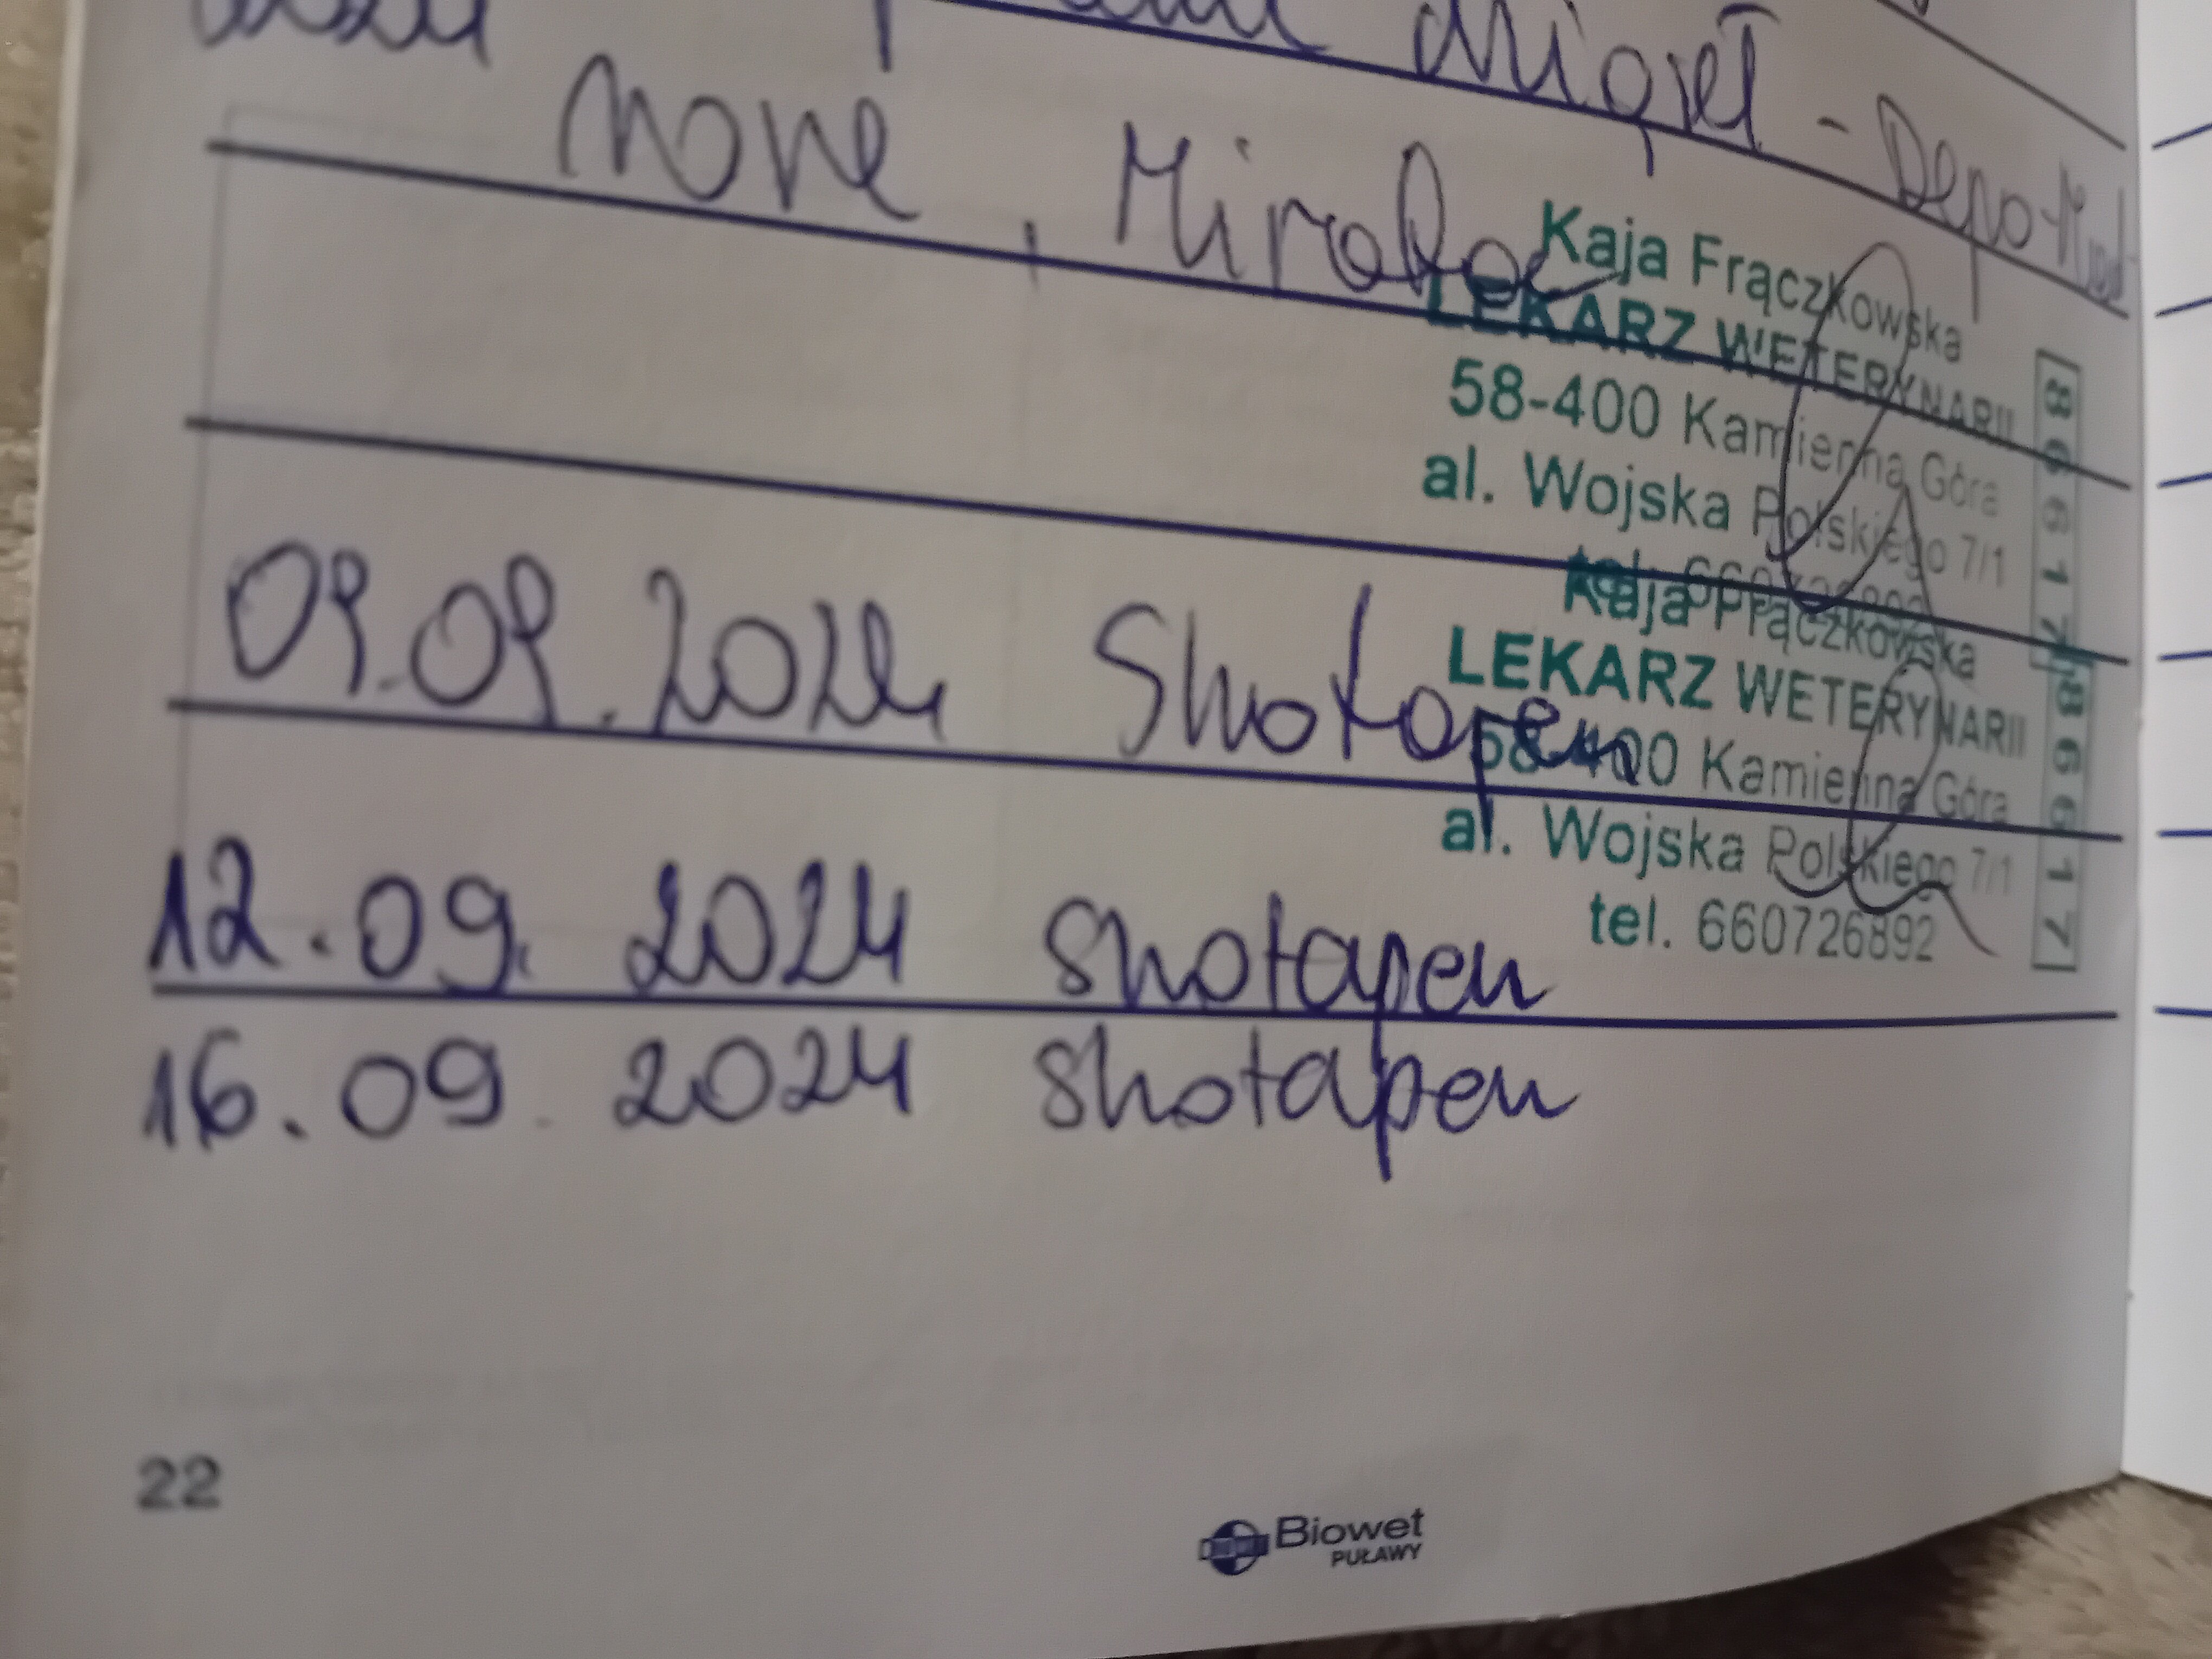 2024 drugiej - Depo-Med
none, Mirolac
Kaja Frączkowska
LEKARZ WETERYNARII
58-400 Kamienna Góra
al. Wojska Polskiego 7/1
86617
09.09.2024 Shotapen
Kaja Frączkowska
LEKARZ WETERYNARII
58-400 Kamienna Góra
al. Wojska Polskiego 7/1
tel. 660726892
86617
12.09.2024 Shotapen
16.09.2024 Shotapen
22
Biowet
PUŁAWY